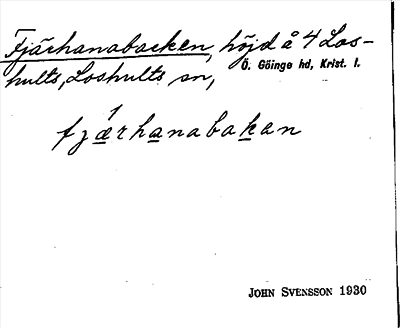 Fjärhanabacken, höjd å 4 Los-
hults, Loshults sn, Ö. Göinge hd, Krist. l.
fjærhanabakan
JOHN SVENSSON 1930